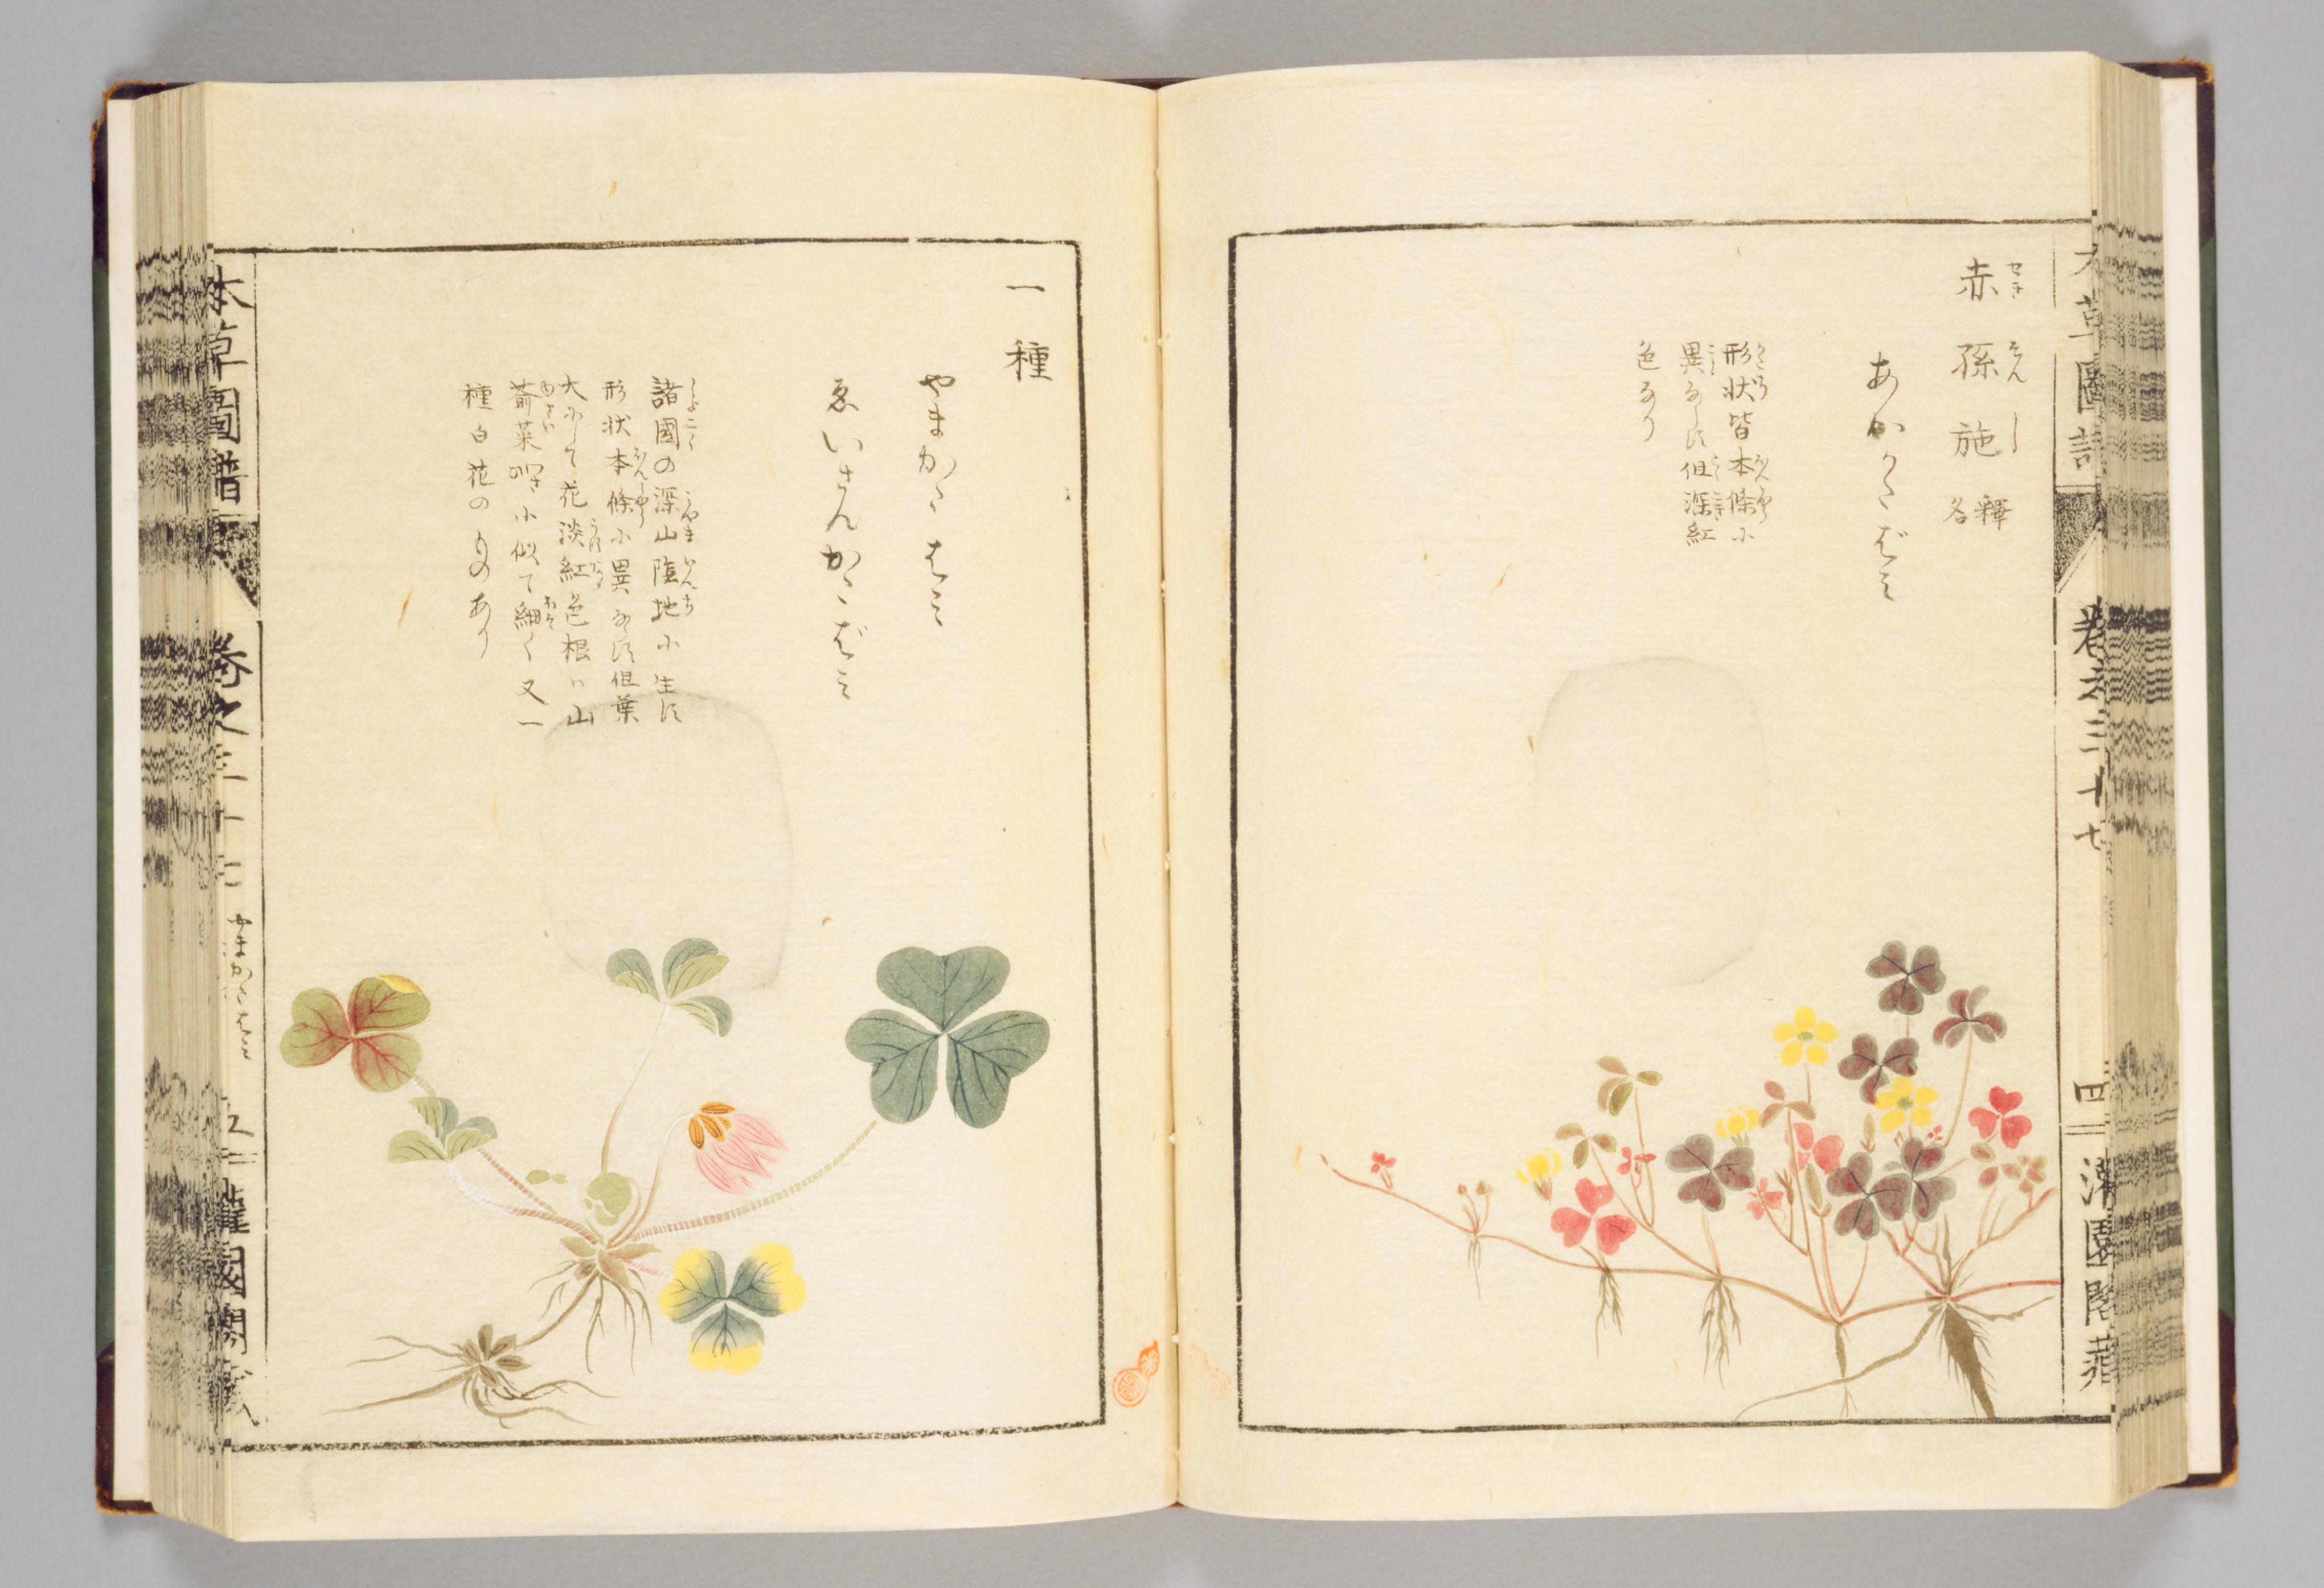 本草圖譜
卷之三十七
四
灌園閣藏
赤孫施 釋名
せきそんし
あかかたばミ
形状皆本條小
異ならに但深紅
色なり
一種
やまかたはミ
ゑいさんかたばミ
諸國の深山陰地小生に
形状本條小異ならに但葉
大小して花淡紅色根ハ山
葥菜 小似て細く又一
種白花のものあり
本草圖譜
卷之三十七
やまかたはミ
五
灌園閣藏